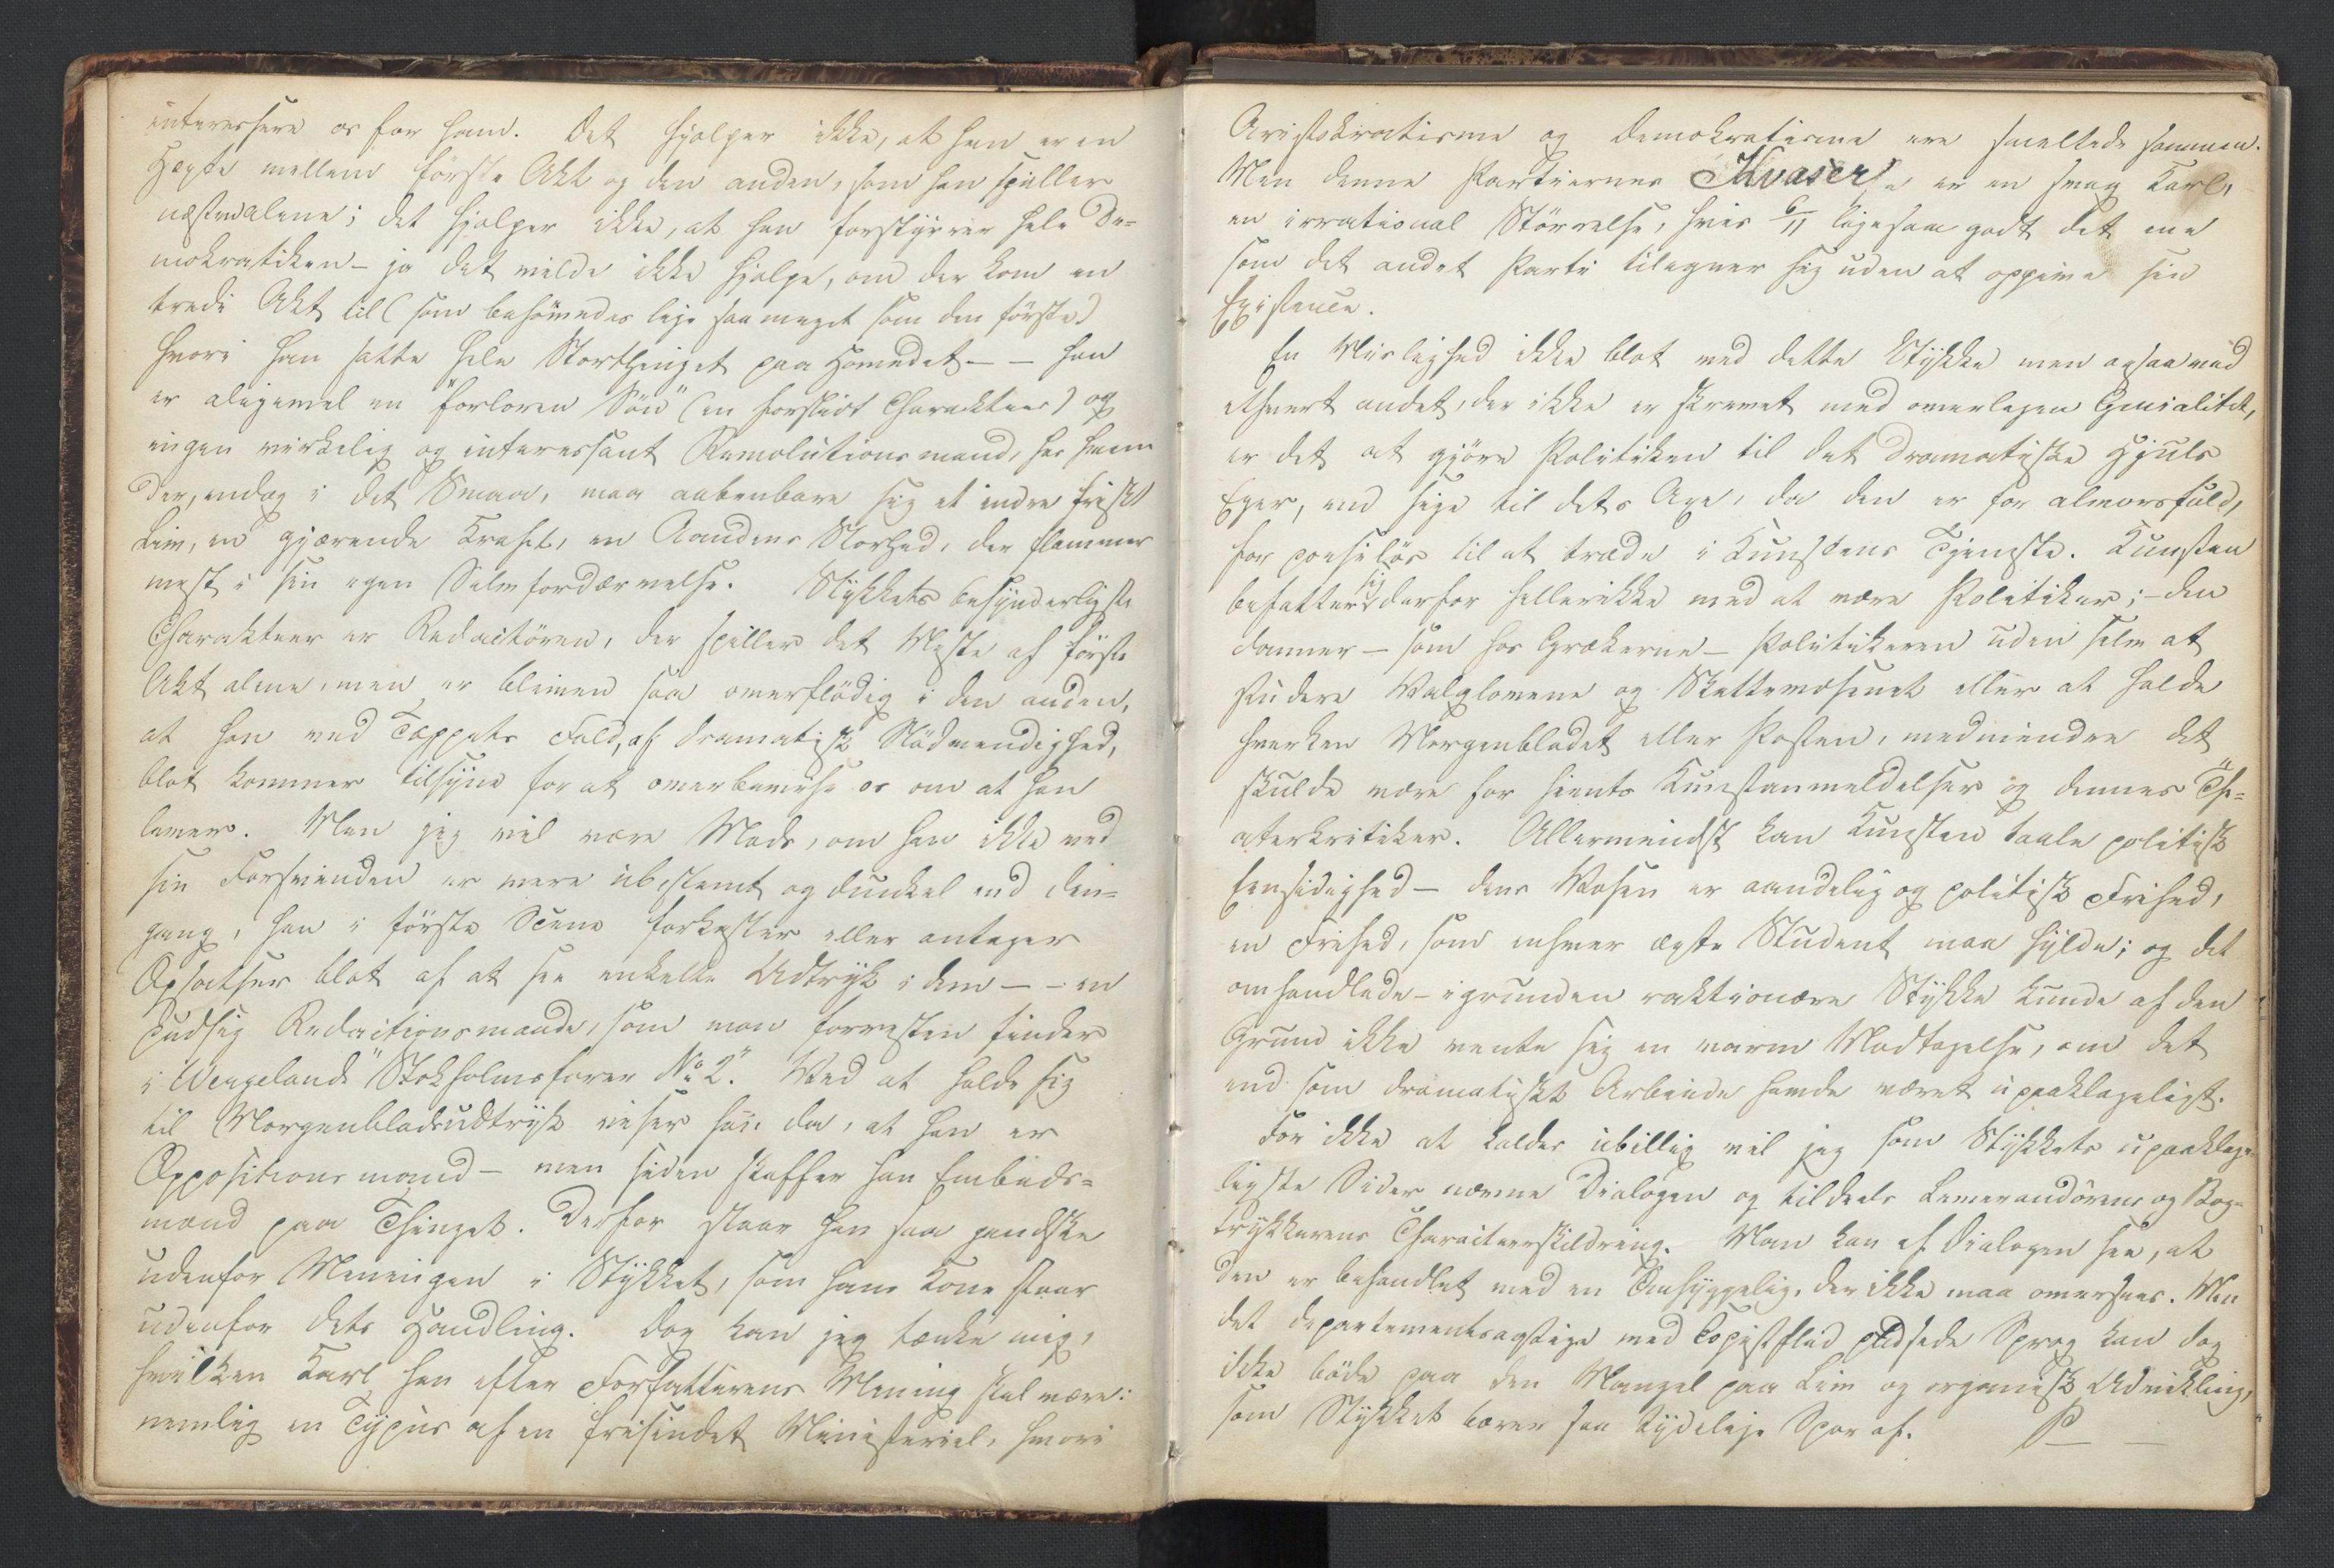 interessere os for ham. Det hjælper ikke, at han er en
Hægte mellem første Akt og den anden, som han spiller
næstenalene; det hjælper ikke, at han forstyrrer hele De-
mokratiken – ja det vilde ikke hjælpe, om der kom en
tredi Akt til (som behøvedes lige saa meget som den første)
hvori han satte hele Storthinget paa Hovedet – – han
er aligevel en "forloren Søn" (en forslidt Charakteer) og
ingen virkelig og interessant Revolutionsmand, hos hvem
der, endog i det Smaa, maa aabenbare sig et indre friskt
Liv, en gjærende Kraft, en Aandens Storhed, der flammer
mest i sin egen Selvfordærvelse. Stykkets besynderligste
Charakteer er Redactøren, der spiller det Meste af første
Akt alene, men er bleven saa overflødig i den anden,
at han ved Tæppets Fald, af dramatisk Nødvendighed,
blot kommer tilsyne for at overbevise os om at han
lever. Men jeg vil være Mads, om han ikke ved
sin Forsvinden er mere ubestemt og dunkel end den-
gang, han i første Scene forkaster eller antager
Opsatser blot af at see enkelte Udtryk i dem – – en
pudsig Redactionsmaade, som man forresten finder
i Wergelands "Stokholmsfarer No 2". Ved at holde sig
til Morgenbladsudtryk viser han da, at han er
Oppositionsmand – men siden skaffer han Embeds-
mænd paa Thinget. Derfor staar han saa gandske
udenfor Meningen i Stykket, som hans Kone staar
udenfor dets Handling. Dog kan jeg tænke mig,
hvilken Karl han efter Forfatterens Mening skal være:
nemlig en Typus af en frisindet Ministeriel, hvori
Aristokratisme og Demokratisme ere smeltede sammen.
Men denne Partiernes Kvaser er en svag Karl,
en irrational Størrelse, hvis 6/11 ligesaa godt det ene
som det andet Parti tilegner sig uden at oppive sin
Existence.
En Mislighed ikke blot ved dette Stykke men ogsaa ved
ethvert andet, der ikke er skrevet med overlegen Genialitet,
er det at gjøre Politiken til det dramatiske Hjuls
Eger, end sige til dets Axe, da den er for alvorsfuld,
for poesiløs til at træde i Kunstens Tjeneste. Kunsten
befatter sig derfor hellerikke med at være Politiker; – den
danner – som hos Grækerne – Politikeren uden selv at
studere Valglovene og Skattevæsenet eller at holde
hverken Morgenbladet eller Posten, medmindre det
skulde være for hiints Kunstanmeldelser og dennes "The-
aterkritiker. Allermindst kan Kunsten taale politisk
Eensidighed – dens Væsen er aandelig og politisk Frihed,
en Frihed, som enhver ægte Student maa hylde; og det
omhandlede – igrunden reaktionære Stykke kunde af den
Grund ikke vente sig en varm Modtagelse, om det
end som dramatiskt Arbeide havde været upaaklageligt.
For ikke at kaldes ubillig vil jeg som Stykkets upaaklage-
ligste Sider nævne Dialogen og tildeels Leverandørens og Bog-
trykkerens Characteerskildring. Man kan af Dialogen see, at
den er behandlet med en Omhyggelig, der ikke maa oversees. Men
det departementsagtige med Copistflid pudsede Sprog kan dog
ikke bøde paa den Mangel paa Liv og organisk Udvikling,
som Stykket bærer saa tydelige Spor af. P – –